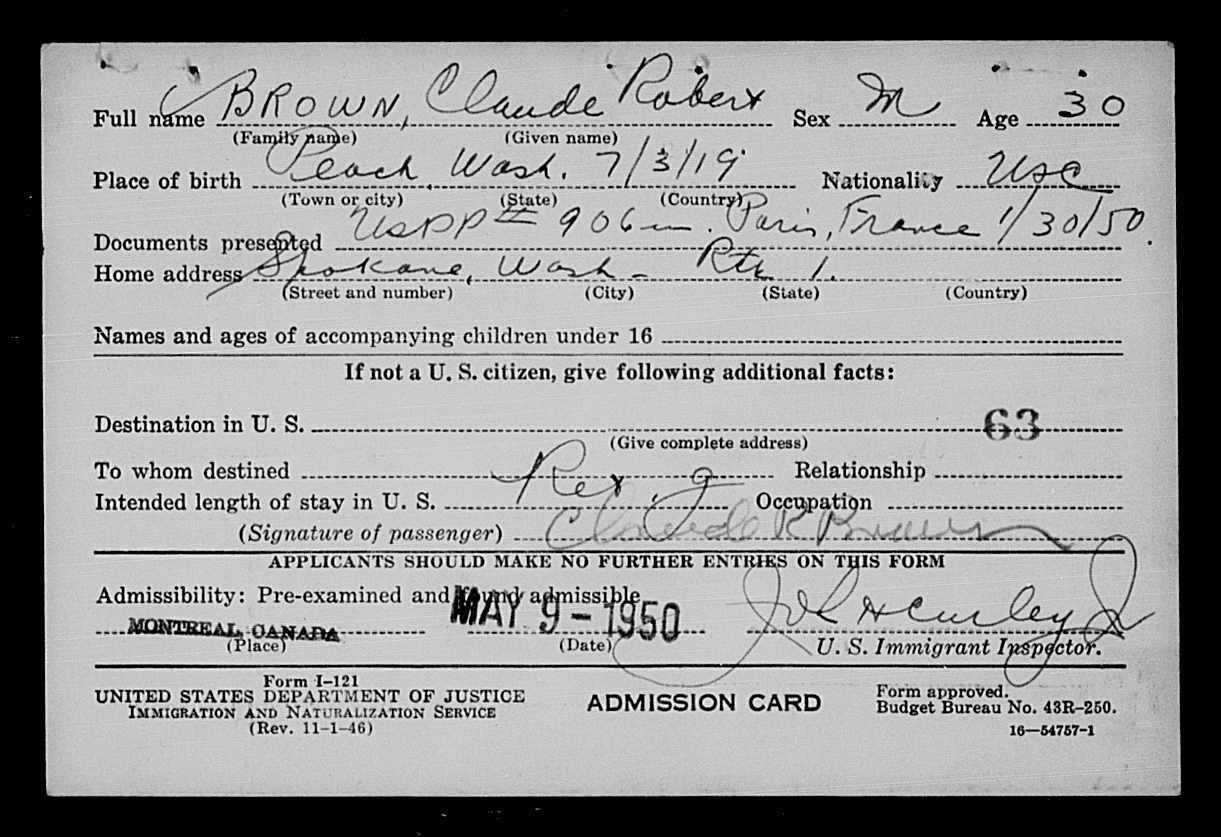 Full name BROWN, Claude Robert Sex M Age 30
(Family name) (Given name)
Place of birth Peach, Wash. 7/3/19 Nationality USC
(Town or city) (State) (Country)
Documents presented USPP# 906 Paris, France 1/30/50.
Home address Spokane, Wash - Rte 1.
(Street and number) (City) (State) (Country)
Names and ages of accompanying children under 16
If not a U. S. citizen, give following additional facts:
Destination in U. S. 63
(Give complete address)
To whom destined Relationship
Intended length of stay in U. S. Occupation
(Signature of passenger) Claude R Brown
APPLICANTS SHOULD MAKE NO FURTHER ENTRIES ON THIS FORM
Admissibility: Pre-examined and found admissible
MONTREAL, CANADA MAY 9 - 1950
(Place) (Date) U. S. Immigrant Inspector.
Form I-121
UNITED STATES DEPARTMENT OF JUSTICE
IMMIGRATION AND NATURALIZATION SERVICE
(Rev. 11-1-46)
ADMISSION CARD
Form approved.
Budget Bureau No. 43R-250.
16—54757-1